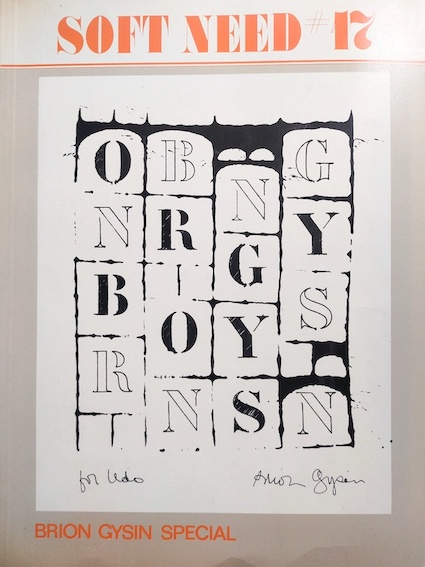 SOFT NEED #17
ONBRI
BRION
NGYS
GYSIN
for Udo
Brion Gysin
BRION GYSIN SPECIAL